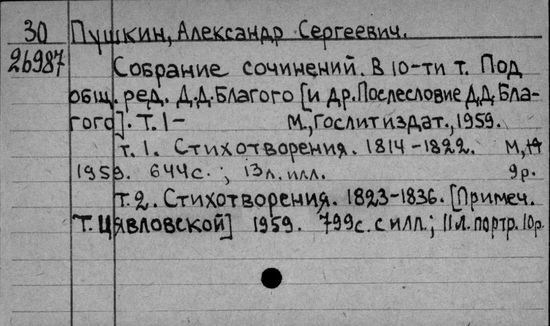 30 Пушкин, Александр Сергеевич.
26987 Собрание сочинений. В 10-ти т. Под
общ. ред. Д.Д. Благого [и др. Послесловие Д.Д. Бла-
гого]. Т. 1- М., Гослитиздат., 1959.
т. 1. Стихотворения. 1814-1822. М,
1959. 644с.; 13л. илл. 9р.
т. 2. Стихотворения. 1823-1836. [Примеч.
Т. Цявловской] 1959. 799с. с илл.; 11л. портр. 10р.